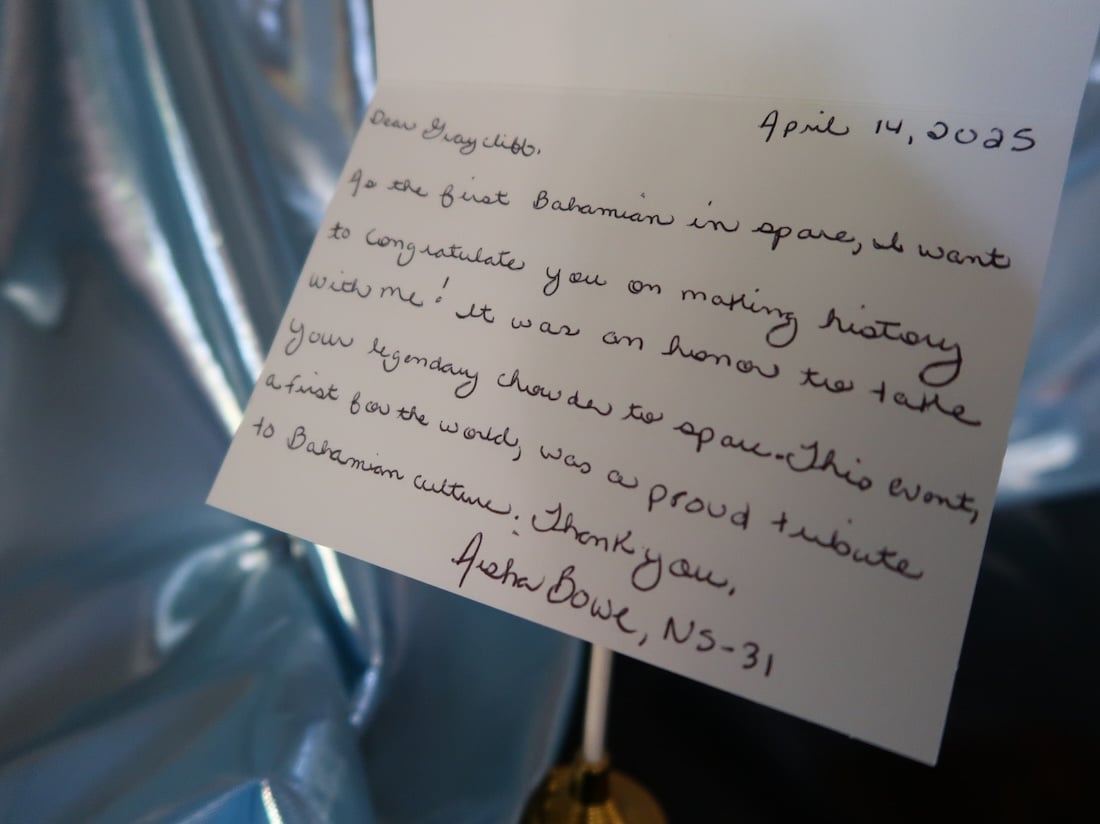 April 14, 2025
Dear Graycliff,
As the first Bahamian in space, I want
to congratulate you on making history
with me! It was an honor to take
your legendary chowder to space. This event,
a first for the world, was a proud tribute
to Bahamian culture. Thank you,
Aisha Bowe, NS-31